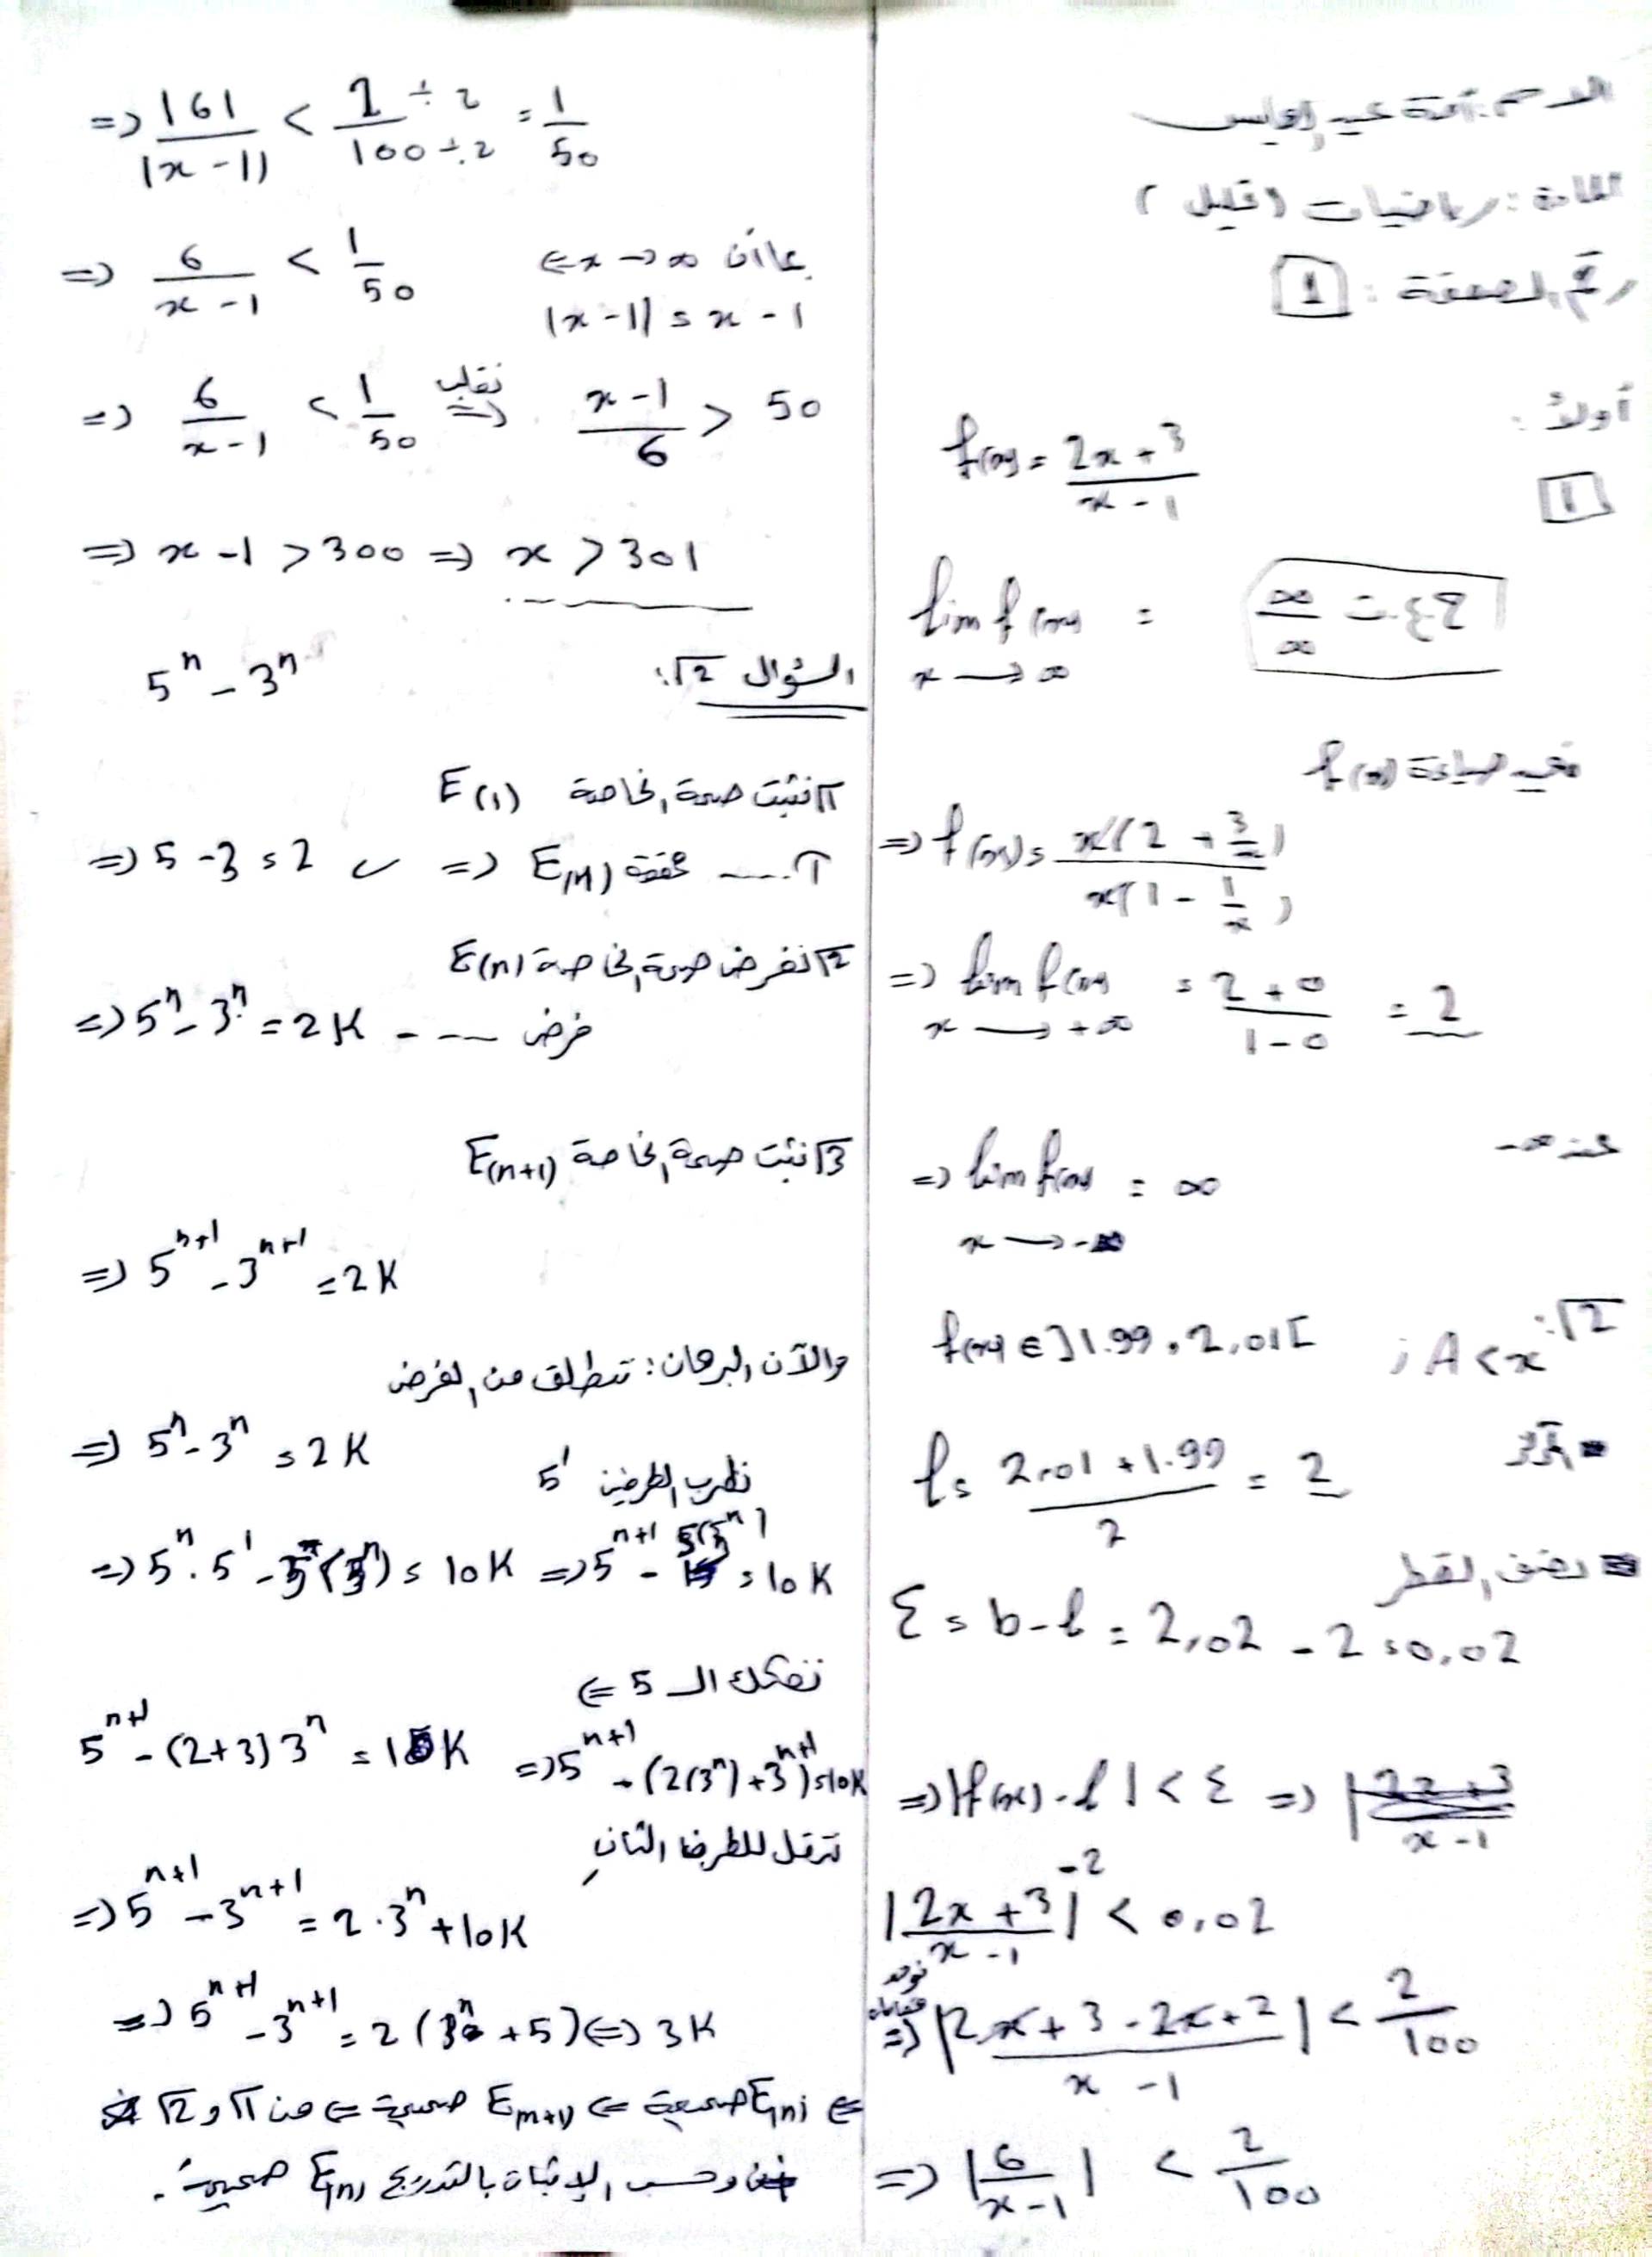 المادة : رياضيات (تحليل)
رقم الصفحة : 1
أولاً :
1
f(x) = \frac{2x + 3}{x - 1}
lim f(x) = \frac{∞}{∞} ح.ع.ت
x → ∞
نغير صياغة f(x)
=> f(x) = \frac{x(2 + \frac{3}{x})}{x(1 - \frac{1}{x})}
=> lim f(x) = \frac{2 + 0}{1 - 0} = 2
x → +∞
عند -∞
=> lim f(x) = ∞
x → -∞
2: A < x ; f(x) ∈ ]1.99 , 2,01[
المركز
l = \frac{2.01 + 1.99}{2} = 2
نصف القطر
Ɛ = b - l = 2,02 - 2 = 0,02
=> |f(x) - l| < Ɛ => |\frac{2x + 3}{x - 1}
|\frac{2x + 3}{x - 1} - 2| < 0,02
نوحد مقامات
=> |\frac{2x + 3 - 2x + 2}{x - 1}| < \frac{2}{100}
=> |\frac{6}{x - 1}| < \frac{2}{100}
=> \frac{|6|}{|x - 1|} < \frac{2 ÷ 2}{100 ÷ 2} = \frac{1}{50}
بما أن x → ∞ <=
=> \frac{6}{x - 1} < \frac{1}{50}
|x - 1| = x - 1
=> \frac{6}{x - 1} < \frac{1}{50} نقلب => \frac{x - 1}{6} > 50
=> x - 1 > 300 => x > 301
السؤال 2: 5^n - 3^n
1 نثبت صحة الخاصة E(1)
=> 5 - 3 = 2 ✓ => E(1) محققة ..... 1
2 نفرض صحة الخاصة E(n)
=> 5^n - 3^n = 2K - - - فرض
3 نثبت صحة الخاصة E(n+1)
=> 5^{n+1} - 3^{n+1} = 2K
والآن البرهان : ننطلق من الفرض
=> 5^n - 3^n = 2K
نضرب الطرفين 5^1
=> 5^n . 5^1 - 5(3^n) = 10K => 5^{n+1} - 5(3^n) = 10K
نفكك الـ 5 <=
5^{n+1} - (2+3)3^n = 10K => 5^{n+1} - (2(3^n) + 3^{n+1}) = 10K
ننقل للطرف الثاني
=> 5^{n+1} - 3^{n+1} = 2 . 3^n + 10K
=> 5^{n+1} - 3^{n+1} = 2(3^n + 5) <=> 3K
<= E(n) صحيحة <= E(n+1) صحيحة <= من 1 و 2
وحسب الإثبات بالتدريج E(n) صحيحة .